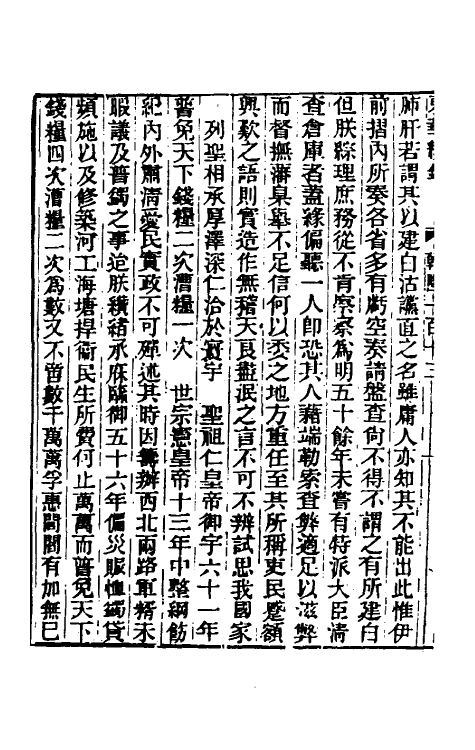 東華續錄　乾隆一百十三
肺肝若謂其以建白沽讜直之名雖庸人亦知其不能出此惟伊
前摺內所奏各省多有虧空奏請盤查尙不得不謂之有所建白
但朕綜理庶務從不肯察察爲明五十餘年未嘗有特派大臣淸
查倉庫者蓋緣偏聽一人卽恐其人藉端勒索查弊適足以滋弊
而督撫藩臬舉不足信何以委之地方重任至其所稱吏民蹙額
興歎之語則實造作無稽天良盡泯之言不可不辨試思我國家
列聖相承厚澤深仁洽於寰宇　聖祖仁皇帝御宇六十一年
普免天下錢糧二次漕糧一次　世宗憲皇帝十三年中整綱飭
紀內外肅淸愛民實政不可殫述其時因籌辦西北兩路軍糈未
暇議及普蠲之事迨朕纘緖承庥臨御五十六年偏災賑恤蠲貸
頻施以及修築河工海塘捍衞民生所費何止萬萬而普免天下
錢糧四次漕糧二次爲數又不啻數千萬萬孚惠閭閻有加無已